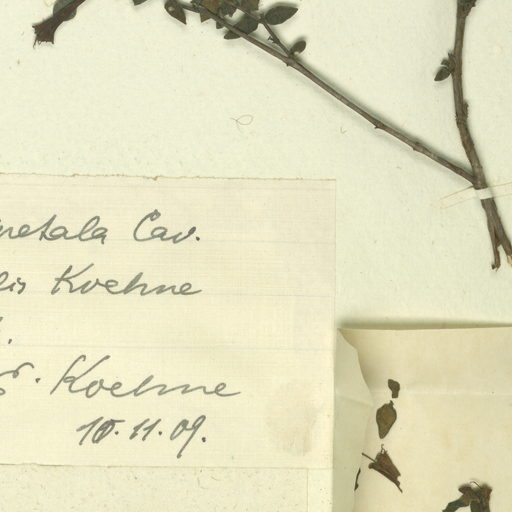 petala Cav.
lis Koehne
E. Koehne
10.11.09.